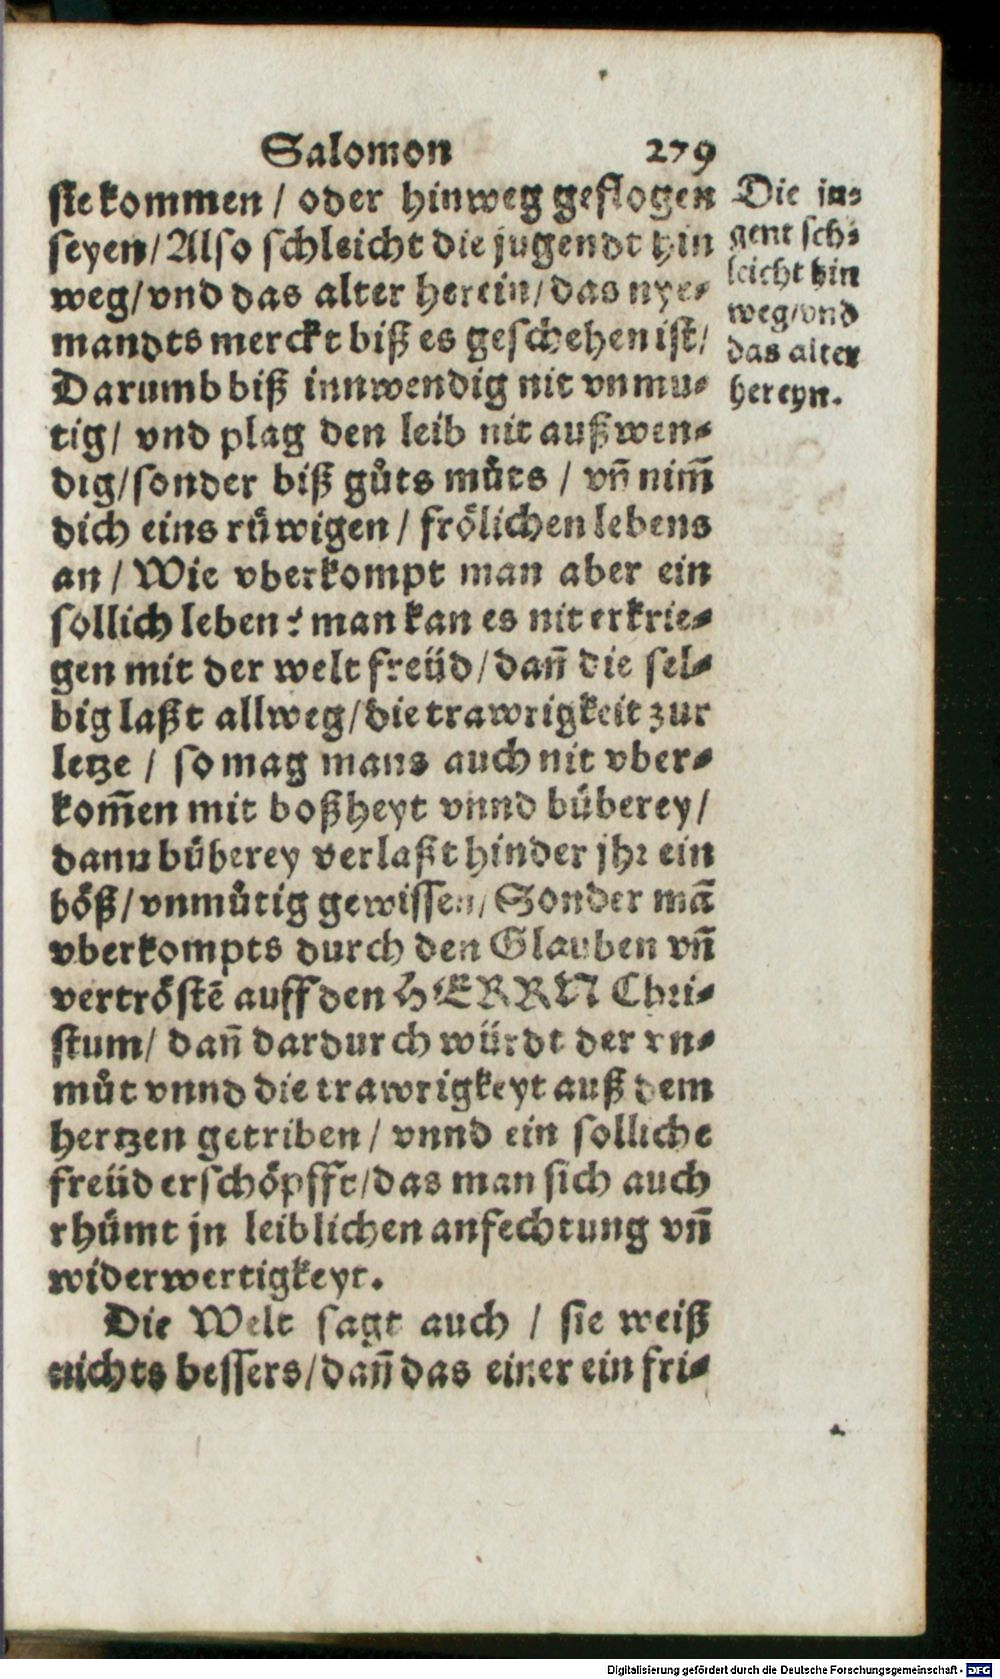 Salomon 279
sie kommen / oder hinweg geflogen
seyen / Also schleicht die jugendt hin
weg / vnd das alter herein / das nye⸗
mandts merckt biß es geschehen ist /
Darumb biß innwendig nit vnmu⸗
tig / vnd plag den leib nit außwen⸗
dig / sonder biß gůts můts / vñ nim̃
dich eins růwigen / frölichen lebens
an / Wie vberkompt man aber ein
sollich leben? man kan es nit erkrie⸗
gen mit der welt freüd / dañ die sel⸗
big laßt allweg / die trawrigkeit zur
letze / so mag mans auch nit vber⸗
kom̃en mit boßheyt vnnd bůberey /
dann bůberey verlaßt hinder jhr ein
böß / vnmůtig gewissen / Sonder mã
vberkompts durch den Glauben vñ
vertröstẽ auff den HERRN Chri⸗
stum / dañ dardurch würdt der vn⸗
můt vnnd die trawrigkeyt auß dem
hertzen getriben / vnnd ein solliche
freüd erschöpfft / das man sich auch
rhůmt jn leiblichen anfechtung vñ
widerwertigkeyt.
Die Welt sagt auch / sie weiß
nichts bessers / dañ das einer ein fri⸗
Die iu⸗
gent sch⸗
leicht hin
weg / vnd
das alter
hereyn.
Digitalisierung gefördert durch die Deutsche Forschungsgemeinschaft - DFG